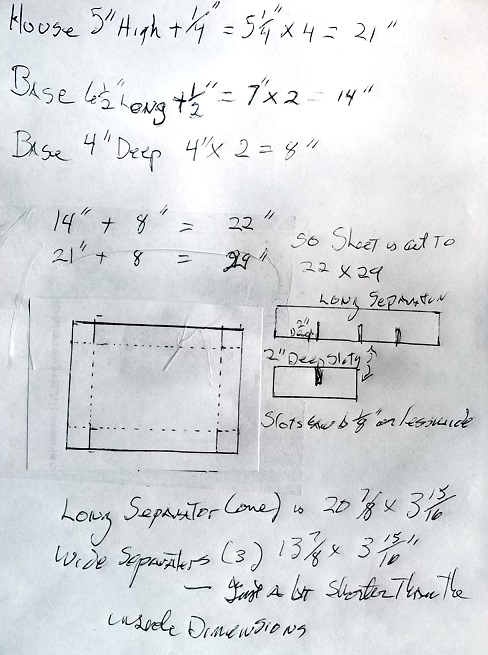 House 5" High + 1/4" = 5 1/4" x 4 = 21"
Base 6 1/2" Long + 1/2" = 7" x 2 = 14"
Base 4" Deep 4" x 2 = 8"
14" + 8" = 22"
21" + 8 = 29"
So Sheet is cut to
22 x 29
Long Separator
2" Deep
2" Deep Slots
Slots 1/8" or less wide
Long Separator (one) is 20 7/8 x 3 15/16
Wide Separators (3) 13 7/8 x 3 15/16"
— Just a bit Shorter Than the
inside Dimensions